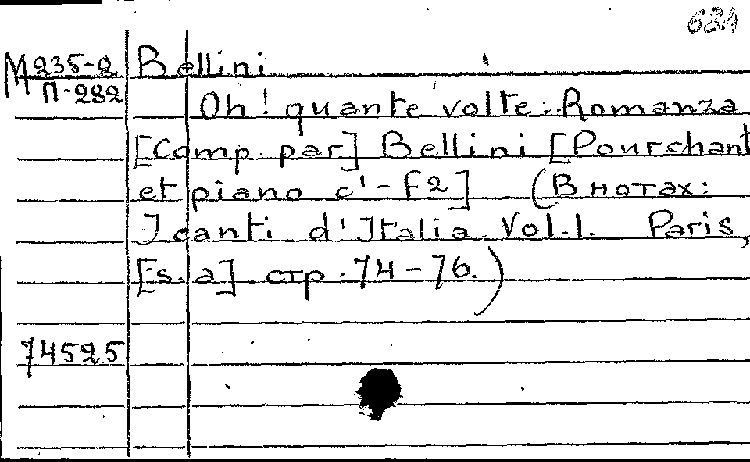 634
М 235-2 Bellini
П-282
Oh! quante volte. Romanza
[Comp. par] Bellini [Pour chant
et piano c'-f2] (В нотах:
I canti d'Italia. Vol.1. Paris,
[s.a]. стр. 74-76.)
74525